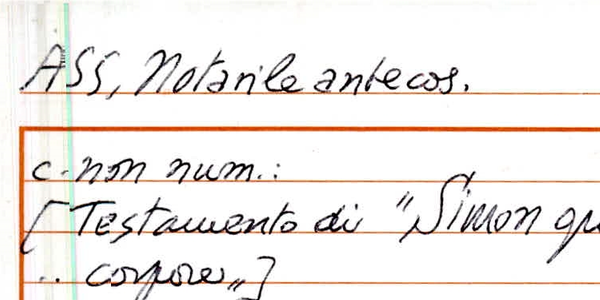 ASS, Notarile antecos.
c. non num.:
[Testamento di "Simon qu
.. corpore"]